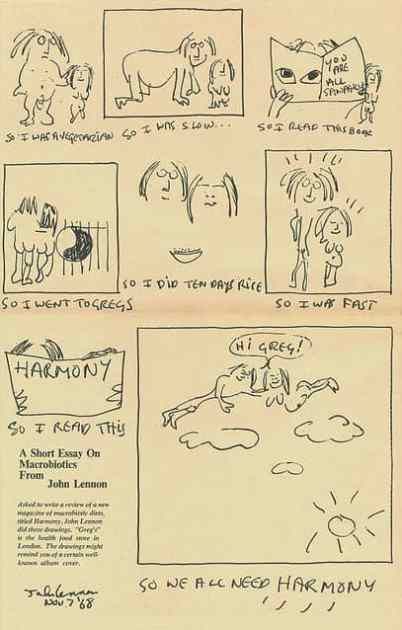 SO I WAS A VEGETARIAN
SO I WAS SLOW...
YOU
ARE
ALL
SANPAKU
SO I READ THIS BOOK
SO I WENT TO GREGS
SO I DID TEN DAYS RICE
SO I WAS FAST
HARMONY
SO I READ THIS
A Short Essay On
Macrobiotics
From
John Lennon
Asked to write a review of a new
magazine of macrobiotic diets,
titled Harmony, John Lennon
did these drawings. "Greg's"
is the health food store in
London. The drawings might
remind you of a certain well-
known album cover.
John Lennon
Nov 7 '68
HI GREG!
SO WE ALL NEED HARMONY